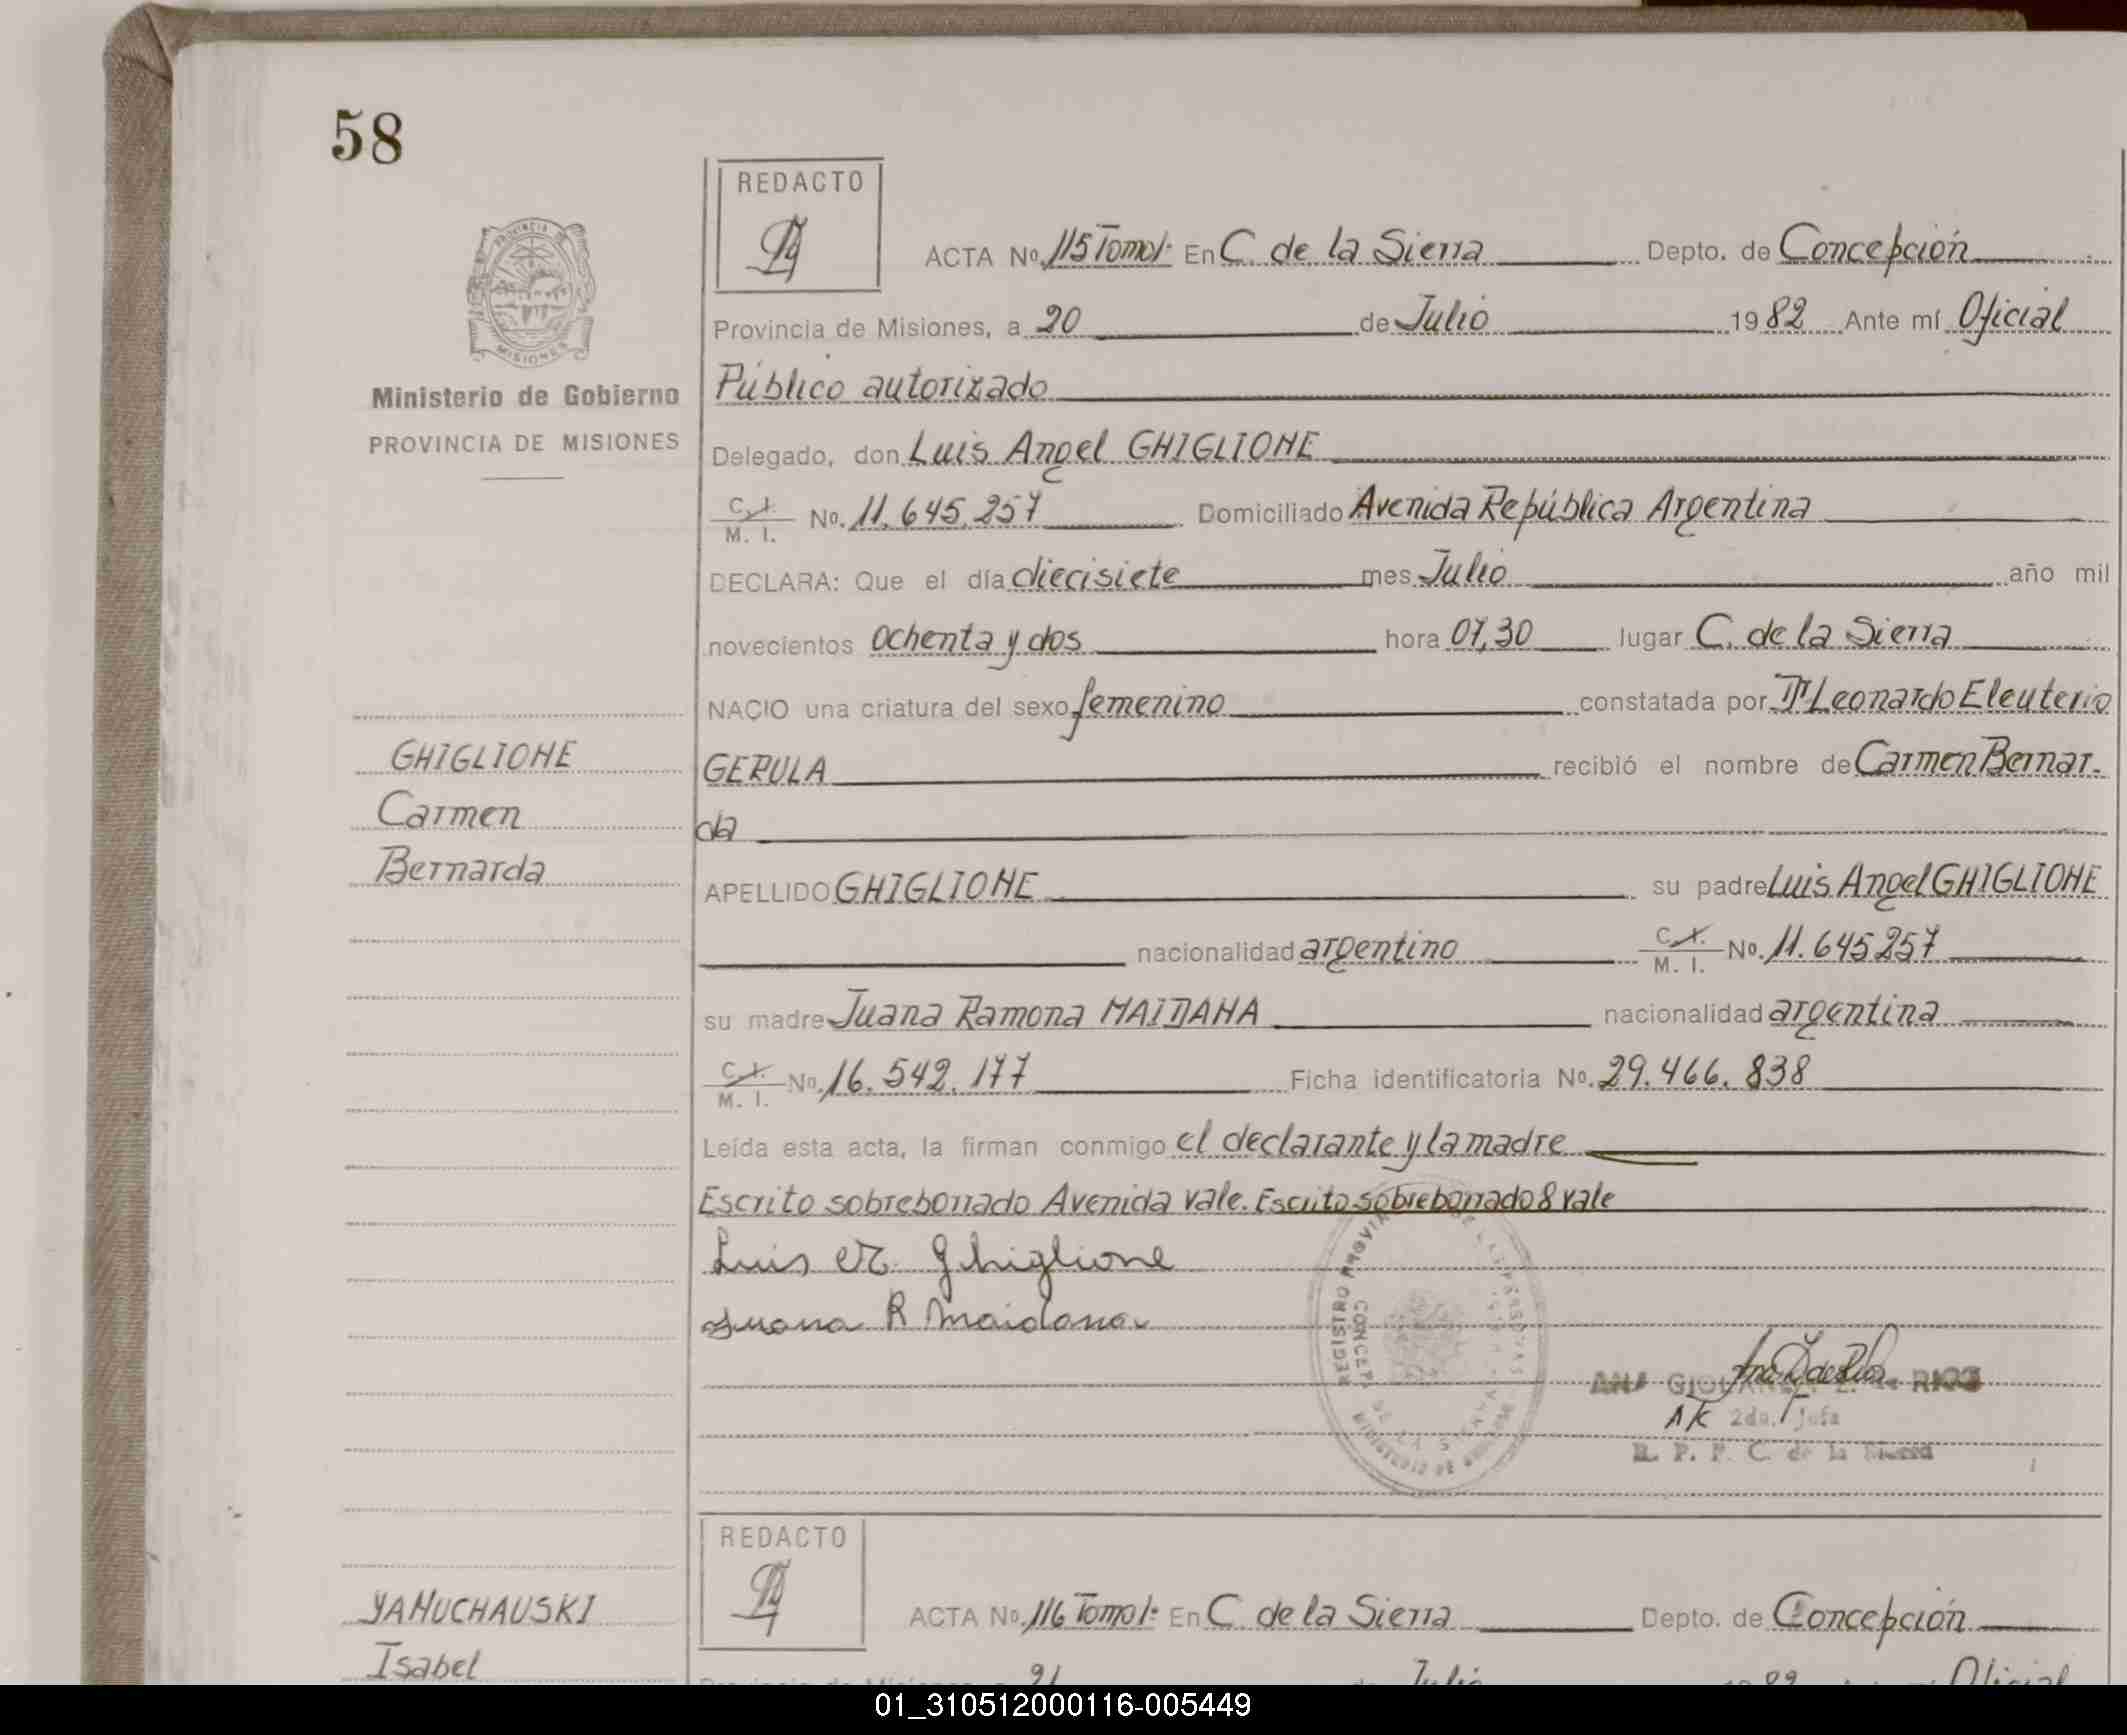 58
REDACTO
ACTA No. 115 Tomo 1º En C. de la Sierra Depto. de Concepción
Provincia de Misiones, a 20 de Julio 1982 Ante mí Oficial
Público autorizado
PROVINCIA DE MISIONES
Ministerio de Gobierno
PROVINCIA DE MISIONES
Delegado, don Luis Angel GHIGLIONE
C. I. / M. I. No. 11.645.257 Domiciliado Avenida República Argentina
DECLARA: Que el día diecisiete mes Julio año mil
novecientos ochenta y dos hora 07,30 lugar C. de la Sierra
NACIO una criatura del sexo femenino constatada por Leonardo Eleuterio
GERULA recibió el nombre de Carmen Bernar-
da
GHIGLIONE
Carmen
Bernarda
APELLIDO GHIGLIONE su padre Luis Angel GHIGLIONE
nacionalidad argentino C. I. / M. I. No. 11.645257
su madre Juana Ramona MAIDANA nacionalidad argentina
C. I. / M. I. No. 16.542.177 Ficha identificatoria No. 29.466.838
Leída esta acta, la firman conmigo el declarante y la madre
Escrito sobreborrado Avenida vale. Escrito sobreborrado 8 vale
Luis A. Ghiglione
Juana R Maidana
REGISTRO PROVINCIAL DE LAS PERSONAS
ANA RIOS
2da. Jefa
R. P. P. C. de la Sierra
REDACTO
ACTA No. 116 Tomo 1º En C. de la Sierra Depto. de Concepción
YANUCHAUSKI
Isabel
Provincia de Misiones, a 21 de Julio 1982 Ante mí Oficial
01_310512000116-005449